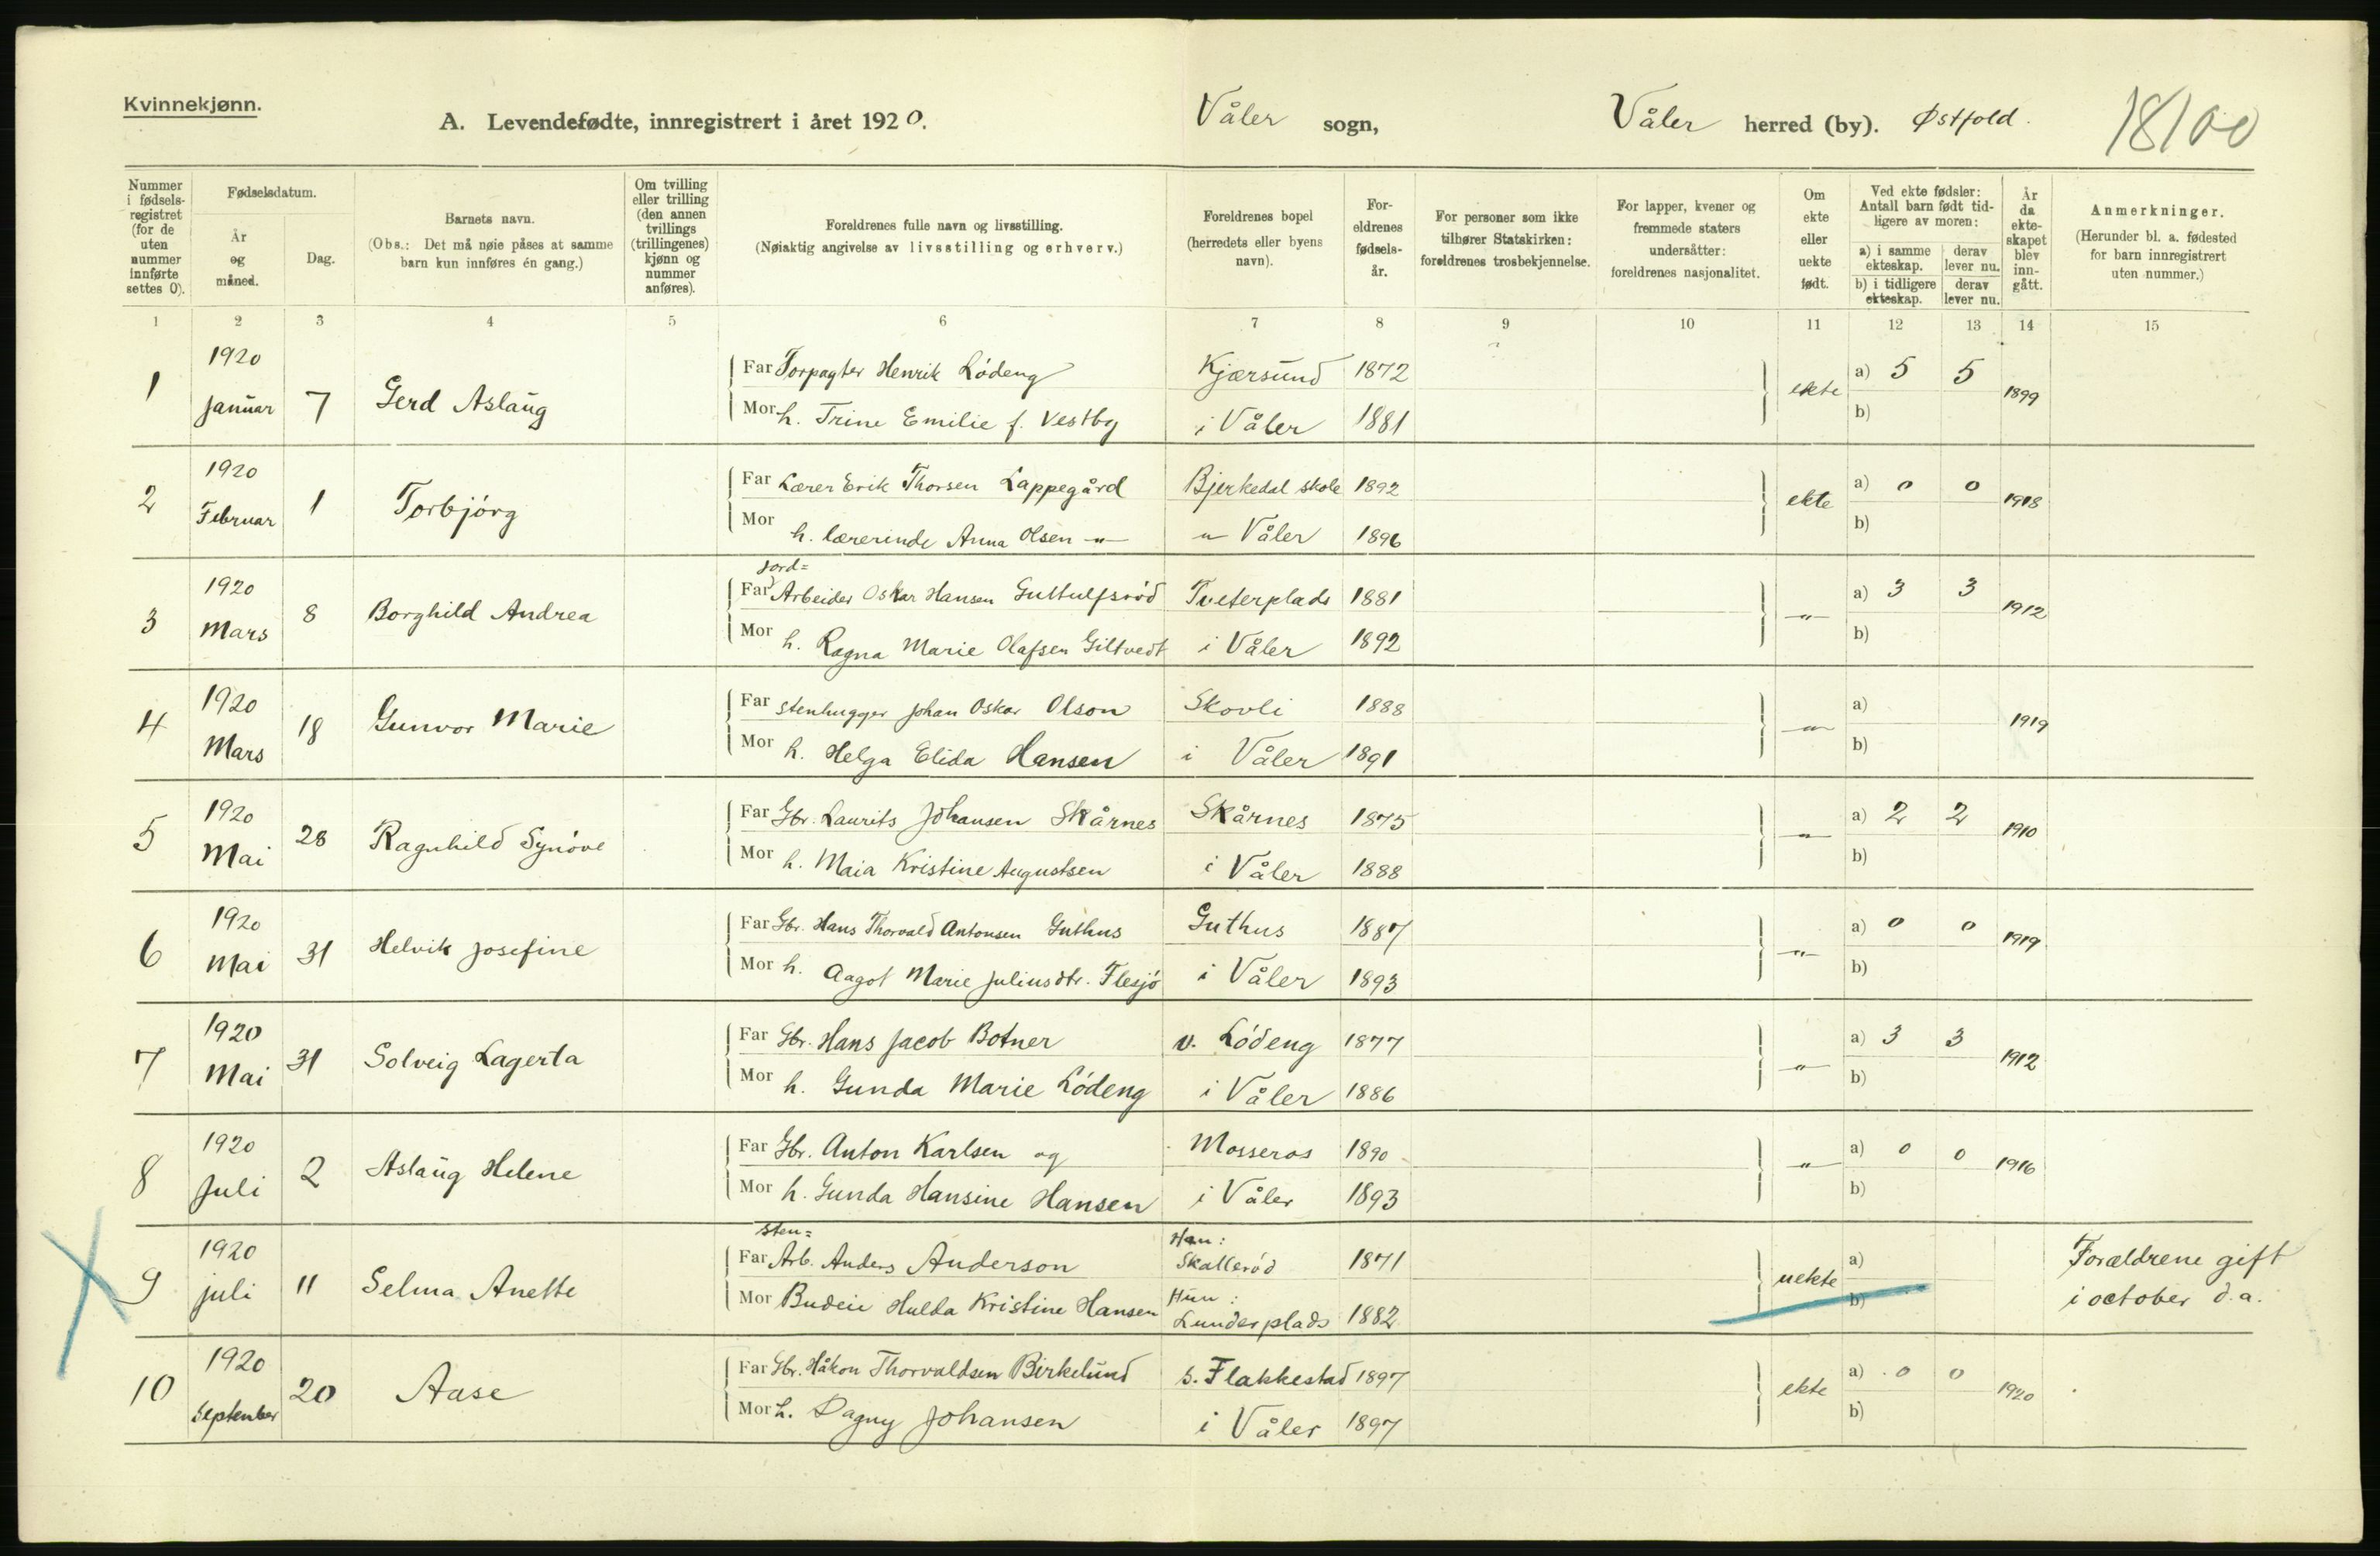 Kvinnekjønn.
A. Levendefødte, innregistrert i året 1920. Våler sogn, Våler herred (by). Østfold. 18/00
Nummer i fødselsregistret (for de uten nummer innførte settes 0).
Fødselsdatum.
År og måned.
Dag.
Barnets navn.
(Obs.: Det må nøie påses at samme barn kun innføres én gang.)
Om tvilling eller trilling (den annen tvillings (trillingenes) kjønn og nummer anføres).
Foreldrenes fulle navn og livsstilling.
(Nøiaktig angivelse av livsstilling og erhverv.)
Foreldrenes bopel (herredets eller byens navn).
Foreldrenes fødselsår.
For personer som ikke tilhører Statskirken: foreldrenes trosbekjennelse.
For lapper, kvener og fremmede staters undersåtter: foreldrenes nasjonalitet.
Om ekte eller uekte født.
Ved ekte fødsler: Antall barn født tidligere av moren:
a) i samme ekteskap. derav lever nu.
b) i tidligere ekteskap. derav lever nu.
År da ekteskapet blev inngått.
Anmerkninger.
(Herunder bl. a. fødested for barn innregistrert uten nummer.)
1 2 3 4 5 6 7 8 9 10 11 12 13 14 15
1 1920 Januar 7 Gerd Aslaug
Far Forpagter Henrik Lödeng Kjærsund 1872 ekte a) 5 5 1899
Mor h. Trine Emilie f. Vestby i Våler 1881 b)
2 1920 Februar 1 Torbjörg
Far Lærer Erik Thorsen Lappegård Bjerkedal skole 1892 ekte a) 0 0 1918
Mor h. lærerinde Anna Olsen -"- " Våler 1896 b)
3 1920 Mars 8 Borghild Andrea
Far Jord=Arbeider Oskar Hansen Guttulfsröd Tveterplads 1881 -"- a) 3 3 1912
Mor h. Ragna Marie Olafsen Giltvedt i Våler 1892 b)
4 1920 Mars 18 Gunvor Marie
Far stenhugger Johan Oskar Olson Skovli 1888 -"- a) 1919
Mor h. Helga Elida Hansen i Våler 1891 b)
5 1920 Mai 28 Ragnhild Synöve
Far Gbr. Laurits Johansen Skårnes Skårnes 1875 -"- a) 2 2 1910
Mor h. Maia Kristine Augustsen i Våler 1888 b)
6 1920 Mai 31 Helvik Josefine
Far Gbr. Hans Thorvald Antonsen Guthus Guthus 1887 -"- a) 0 0 1919
Mor h. Aagot Marie Juliusdtr. Flesjö i Våler 1893 b)
7 1920 Mai 31 Solveig Lagerta
Far Gbr. Hans Jacob Botner v. Lödeng 1877 -"- a) 3 3 1912
Mor h. Gunda Marie Lödeng i Våler 1886 b)
8 1920 Juli 2 Aslaug Helene
Far Gbr. Anton Karlsen og Mosseros 1890 -"- a) 0 0 1916
Mor h. Gunda Hansine Hansen i Våler 1893 b)
9 1920 juli 11 Selma Anette
Far Sten=Arb. Anders Anderson Han: Skalleröd 1871 uekte a) Forældrene gift
Mor Budeie Hulda Kristine Hansen Hun: Lunderplads 1882 b) i october d.a.
10 1920 September 20 Aase
Far Gbr. Håkon Thorvaldsen Birkelund s. Flakkestad 1897 ekte a) 0 0 1920
Mor h. Dagny Johansen i Våler 1897 b)